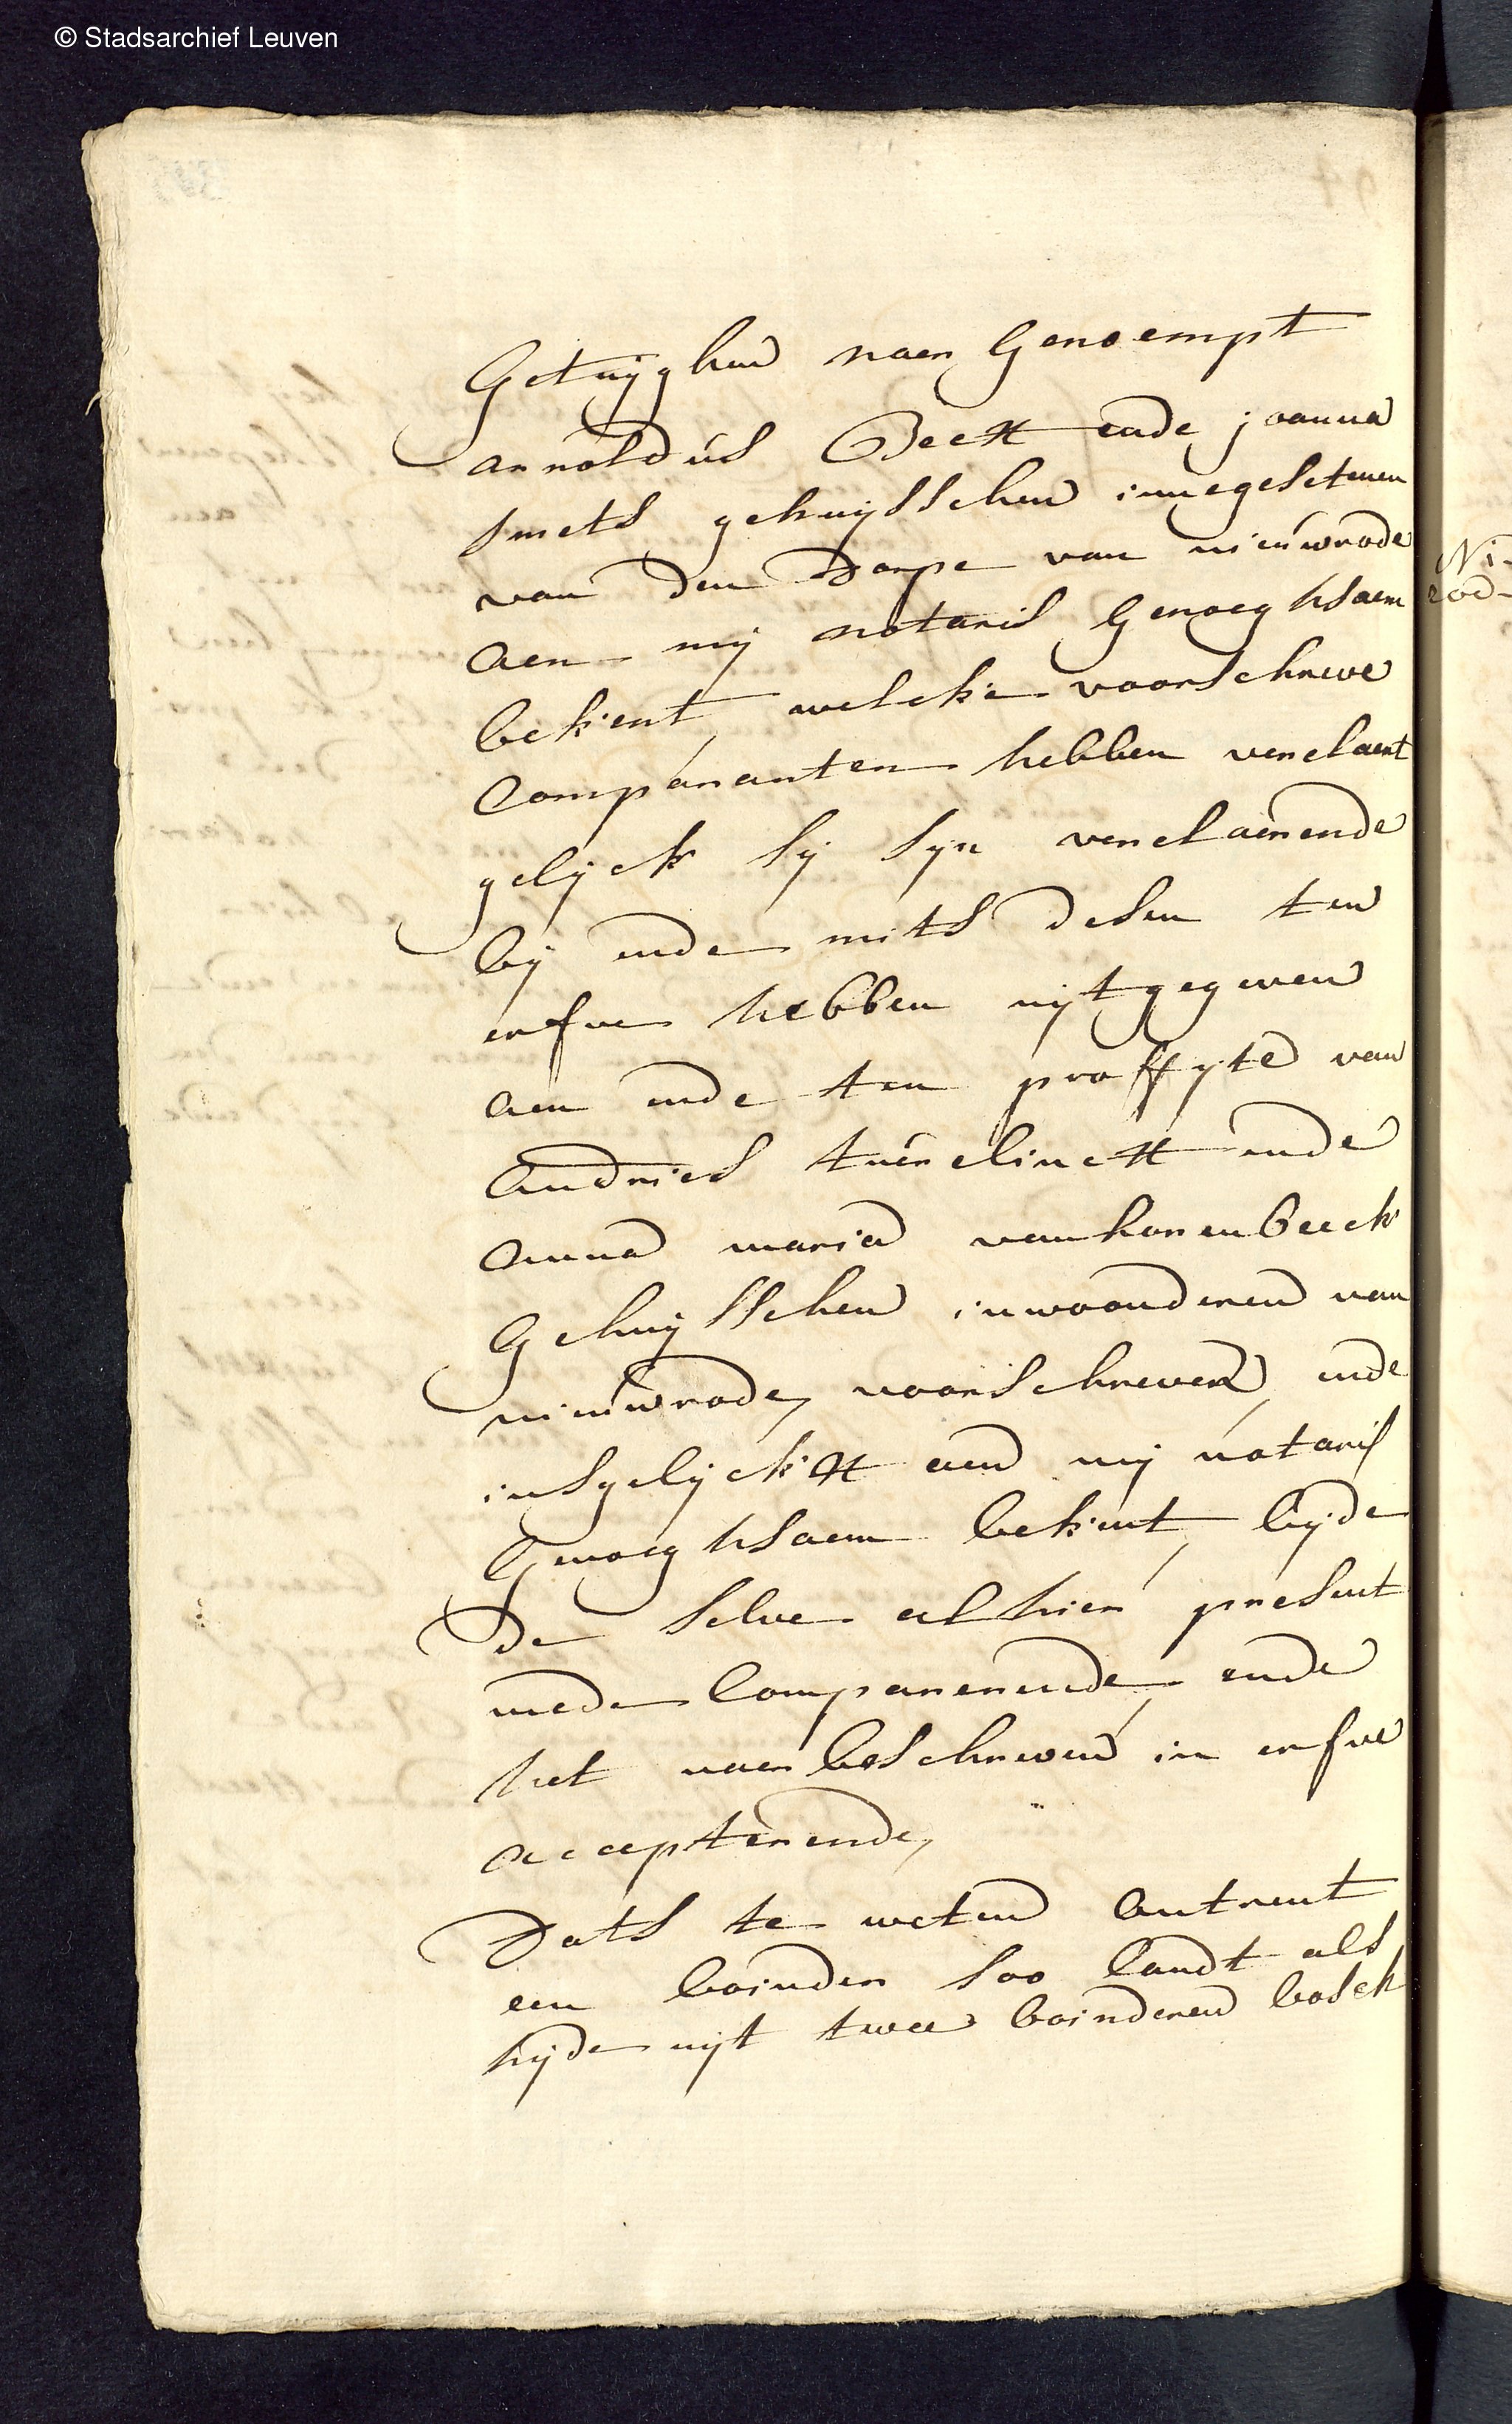 © Stadsarchief Leuven
Getuijghen naer Genoempt
arnoldús Beckx ende joanna
smets gehuijsschen inn egesetenen
van den Dorpe van nieúwrode
aen mij notaris Genoeghsaem
bekent, welcke voorschreve
Comparanten hebben verclaert
gelijck sij sijn verclaerende
bij ende mits desen ten
erfve hebben uijtgegeven
aen ende ten proffijte van
Andries tuerelinckx ende
Anna maria vanhorenbeeck
Gehuijsschen inwoonderen van
nieúwrode, voorschreven, ende
insgelijckx aen mij notaris
Genoeghsaem bekent, bijde
De selve alhier present
mede Comparerende, ende
het naerbeschreven in erfve
accepterende,
Dats te weten Ontrent
een boinder soo landt als
hijde uijt twee boinderen bosch
Ni-
rod-